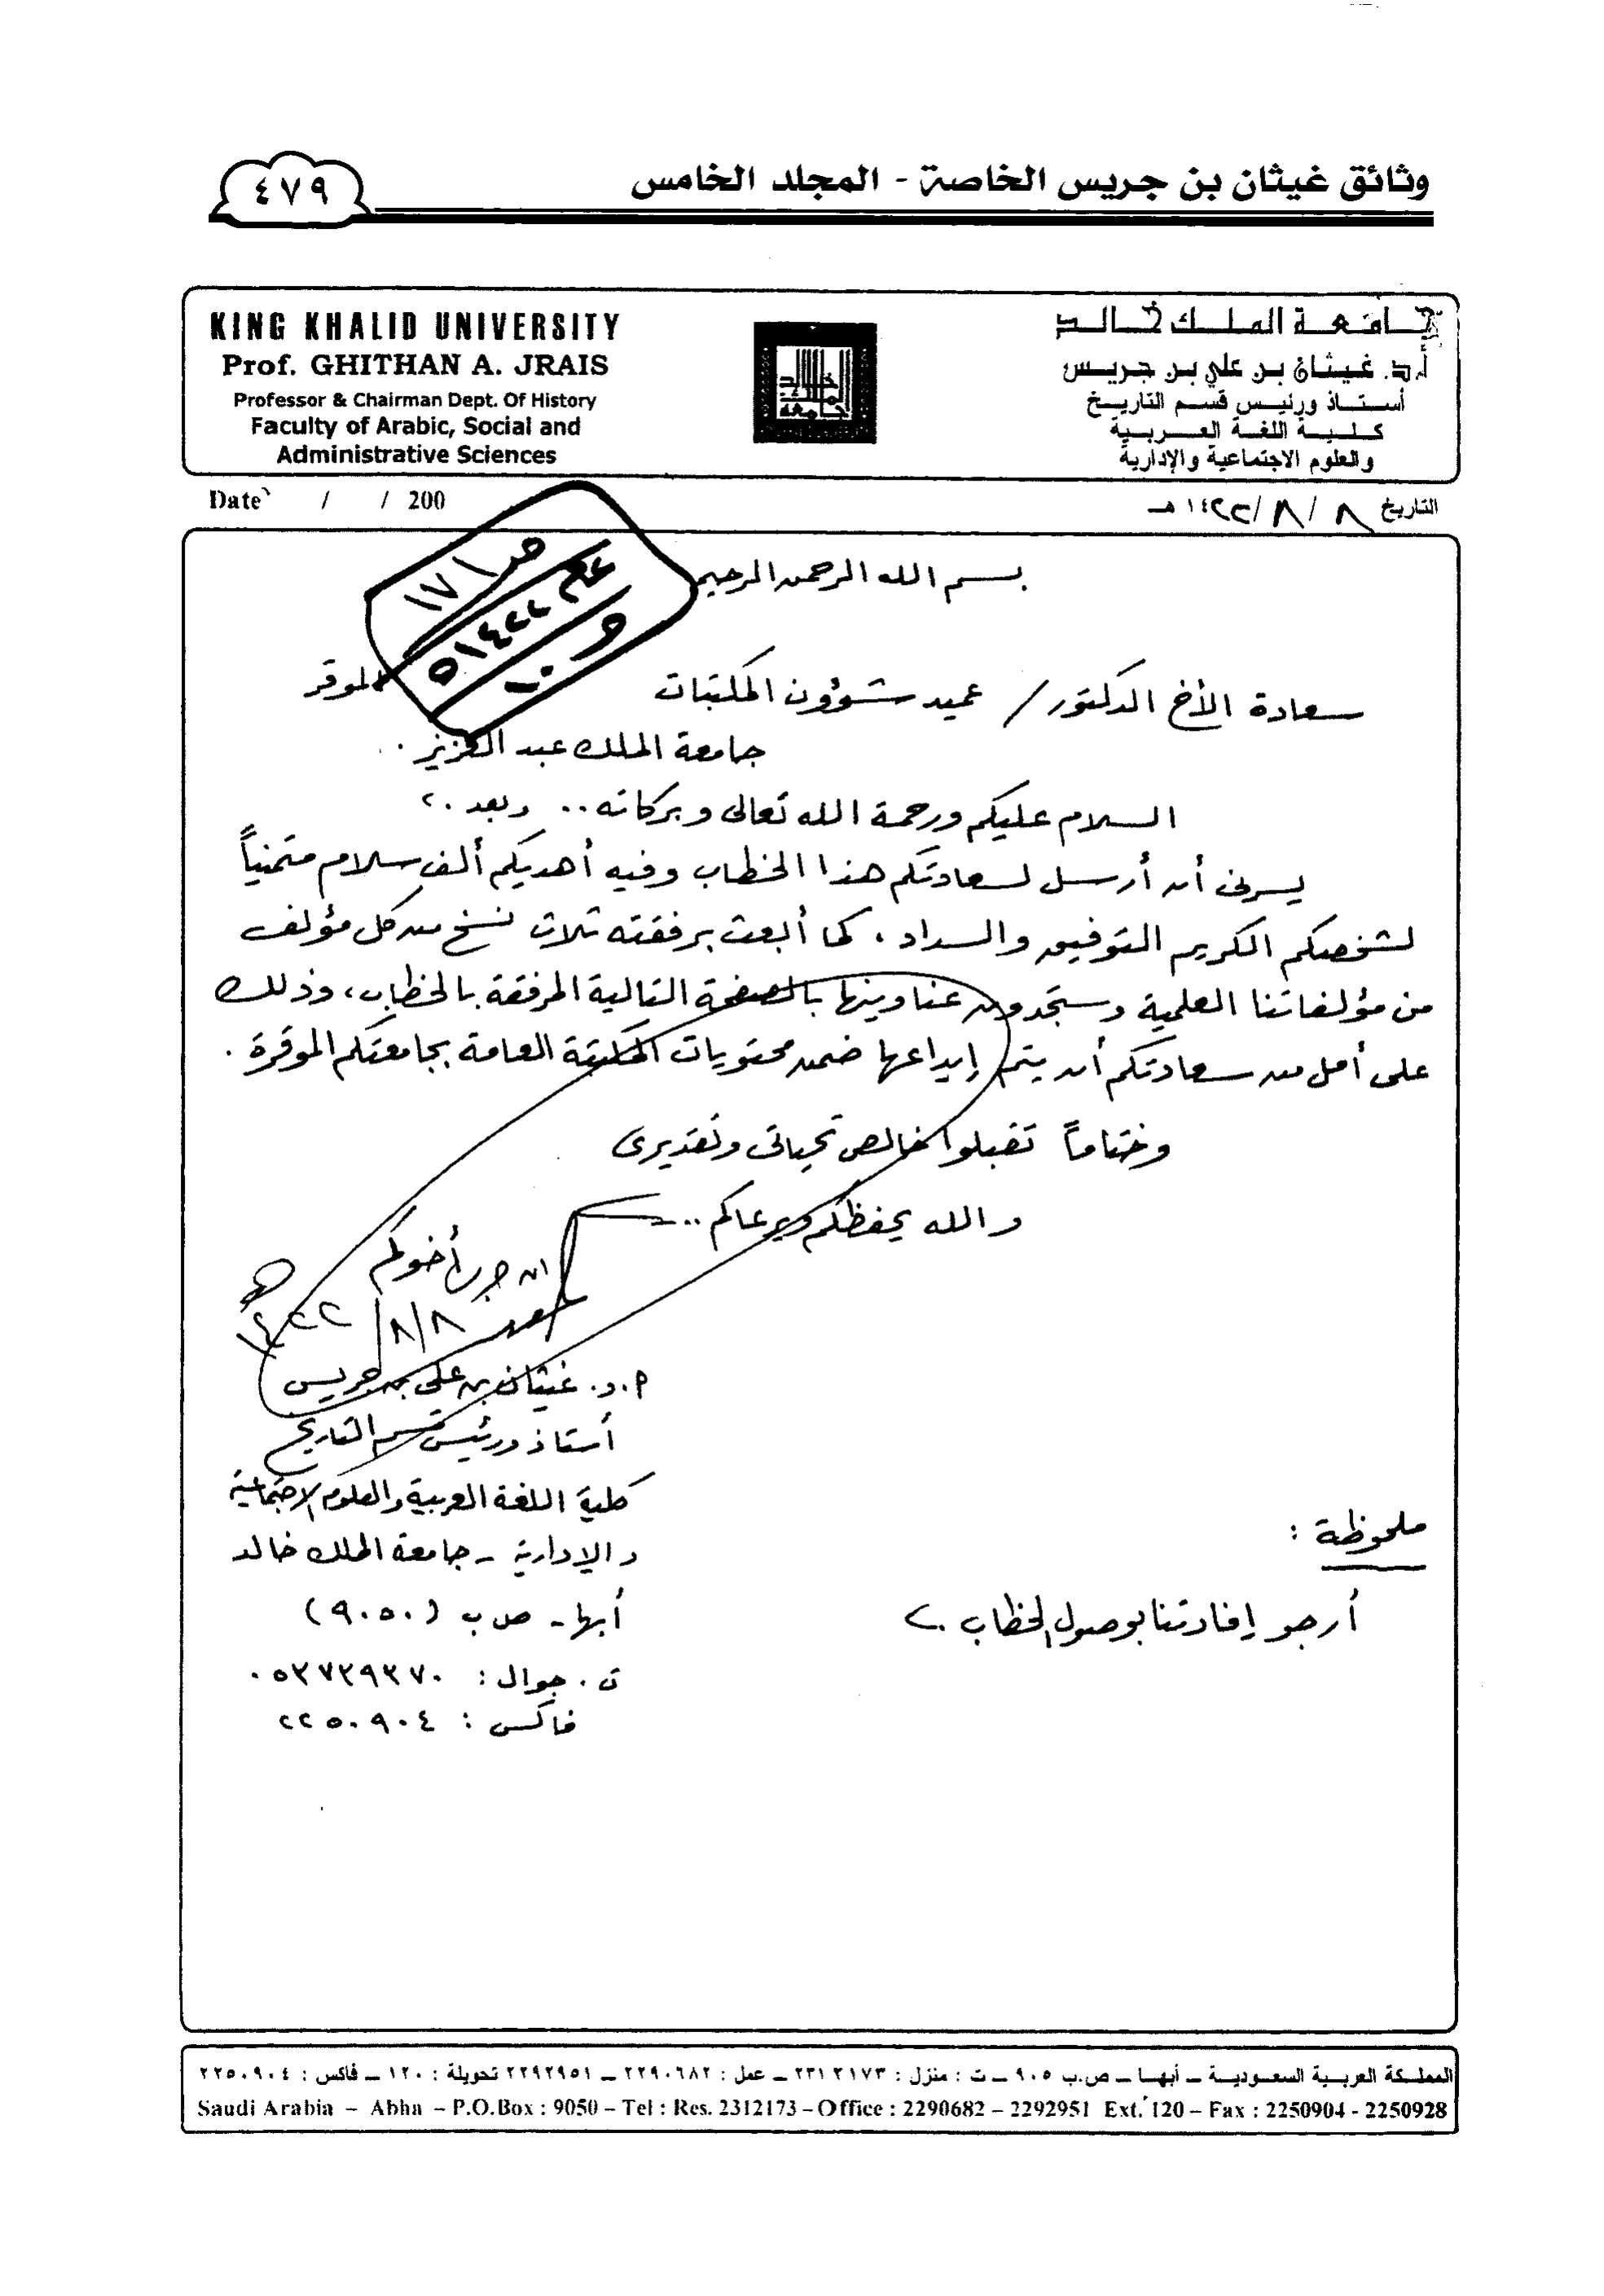 وثائق غيثان بن جريس الخاصة - المجلد الخامس
٤٧٩
KING KHALID UNIVERSITY
Prof. GHITHAN A. JRAIS
Professor & Chairman Dept. Of History
Faculty of Arabic, Social and
Administrative Sciences
جامعة الملك خالد
أ.د. غيثان بن علي بن جريس
أستاذ ورئيس قسم التاريخ
كلية اللغة العربية
والعلوم الاجتماعية والإدارية
Date / / 200
التاريخ ٨ / ٨ / ١٤٢٢ هـ
ص ١٧١
عام ١٤٢٢هـ
بسم الله الرحمن الرحيم
سعادة الأخ الدكتور / عميد شؤون المكتبات الموقر
جامعة الملك عبد العزيز .
السلام عليكم ورحمة الله تعالى وبركاته .. وبعد ..
يسرني أن أرسل لسعادتكم هذا الخطاب وفيه أهديكم ألف سلام متمنياً
لشخصكم الكريم التوفيق والسداد ، كما أبعث برفقته ثلاث نسخ من كل مؤلف
من مؤلفاتنا العلمية وستجدون عناوينها بالصفحة التالية المرفقة بالخطاب ، وذلك
على أمل من سعادتكم أن يتم إيداعها ضمن محتويات المكتبة العامة بجامعتكم الموقرة .
وختاماً تقبلوا خالص تحياتي وتقديري
والله يحفظكم ويرعاكم ..
أخوكم
٨/٨/١٤٢٢هـ
أ.د. غيثان بن علي بن جريس
أستاذ ورئيس قسم التاريخ
كلية اللغة العربية والعلوم الاجتماعية
والإدارية - جامعة الملك خالد
أبها - ص ب (٩٠٥٠)
ت . جوال : ٠٥٣٧٣٩٣٧٠
فاكس : ٢٢٥٠٩٠٤
ملحوظة :
أرجو إفادتنا بوصول الخطاب .
المملكة العربية السعودية – أبها – ص.ب ٩٠٥ – ت : منزل : ٢٣١٢١٧٣ – عمل : ٢٢٩٠٦٨٢ – ٢٢٩٢٩٥١ تحويلة : ١٢٠ – فاكس : ٢٢٥٠٩٠٤
Saudi Arabia – Abha – P.O.Box : 9050 – Tel : Res. 2312173 – Office : 2290682 – 2292951 Ext. 120 – Fax : 2250904 - 2250928